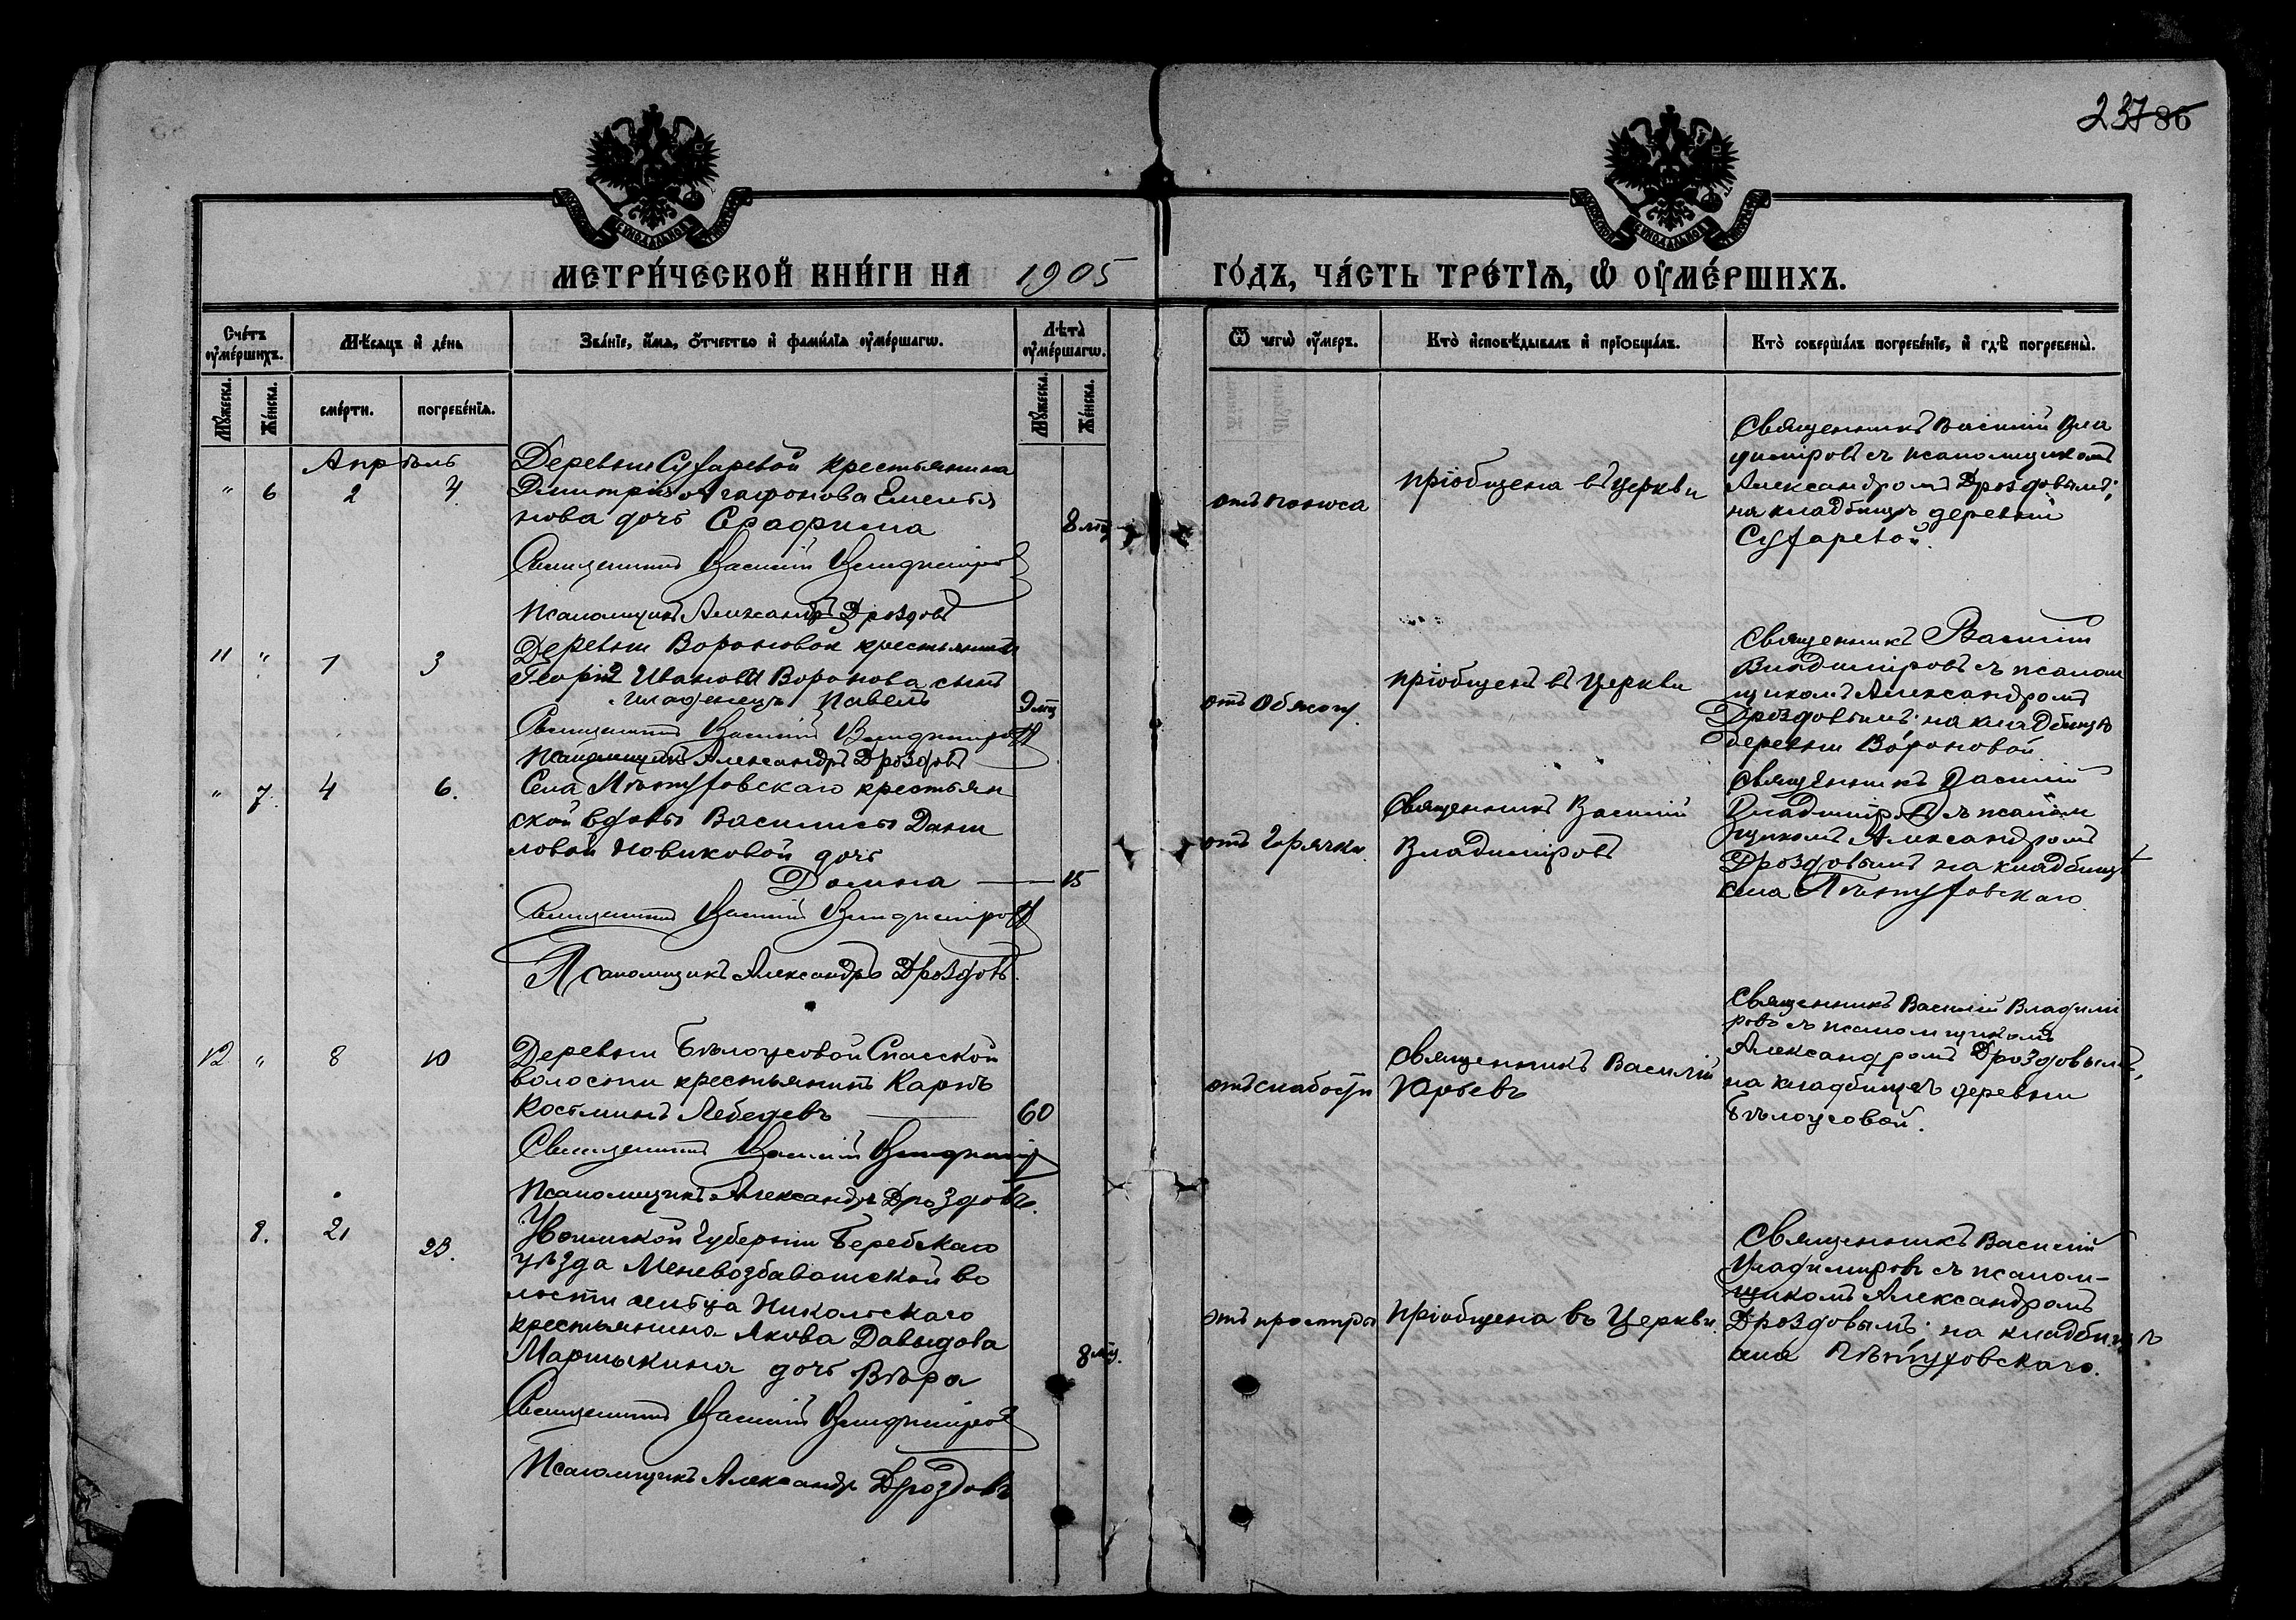 237 86
МЕТРИ́ЧЕСКОЙ КНИ́ГИ НА 1905 ГО́ДЪ, ЧА́СТЬ ТРЕ́ТЇѦ, Ѡ ОУМЕ́РШИХЪ.
Сче́тъ оумершихъ.
Мѣ́сяцъ и де́нь
Зва́нїе, и́мя, о́тчество и фами́лїя оуме́ршагѡ.
Лѣта̀ оуме́ршагѡ.
Ѿ чегѡ̀ оу́меръ.
Кто̀ исповѣ́дывалъ и прїобща́лъ.
Кто̀ соверша́лъ погребе́нїе, и гдѣ̀ погребены̀.
Мꙋ́жеска.
Же́нска.
сме́рти.
погребе́нїя.
Мꙋ́жеска.
Же́нска.
Апрѣль
" 6 2 4.
Деревни Сухаревой крестьянина
Дмитрія Агафонова Емелья
нова дочь Серафима
8 мц
Священникъ Василій Владиміровъ
Псаломщикъ Александръ Дроздовъ
отъ поноса
пріобщена въ церкви
Священникъ Василій Вла
диміровъ съ псаломщикомъ
Александромъ Дроздовымъ;
на кладбищѣ деревни
Сухаревой.
11 " 1 3
Деревни Вороновой крестьянина
Георгія Иванова Воронова сынъ
младенецъ Павелъ
9 мц
Священникъ Василій Владиміровъ
Псаломщикъ Александръ Дроздовъ
пріобщенъ въ Церкви
Священникъ Василій
Владиміровъ съ псалом
щикомъ Александромъ
Дроздовымъ; на кладбищѣ
деревни Вороновой
" 7. 4 6.
Села Пѣтуховскаго крестьян
ской вдовы Василисы Дани
ловой Новиковой дочь
Домна 15
Священникъ Василій Владиміровъ
Псаломщикъ Александръ Дроздовъ.
отъ горячки.
Священникъ Василій
Владиміровъ
Священникъ Василій
Владиміровъ съ псалом
щикомъ Александромъ
Дроздовымъ на кладбищѣ
села Пѣтуховскаго.
12 " 8 10
Деревни Бѣлоусовой Спасской
волости крестьянинъ Карпъ
Косьминъ Лебедевъ 60
Священникъ Василій Владиміровъ
Псаломщикъ Александръ Дроздовъ.
отъ слабости
Священникъ Василій
Юрьевъ
Священникъ Василій Владимі
ровъ съ псаломщикомъ
Александромъ Дроздовымъ,
на кладбищѣ деревни
Бѣлоусовой.
8. 21 23.
Губерніи
уѣзда во
лости сельца Никольскаго
крестьянина Якова Давыдова
Мартыкина дочь Вѣра
8 мц.
Священникъ Василій Владиміровъ
Псаломщикъ Александръ Дроздовъ
пріобщена въ Церкви.
Священникъ Василій
Владиміровъ съ псалом-
щикомъ Александромъ
Дроздовымъ; на кладбищѣ
села Пѣтуховскаго.